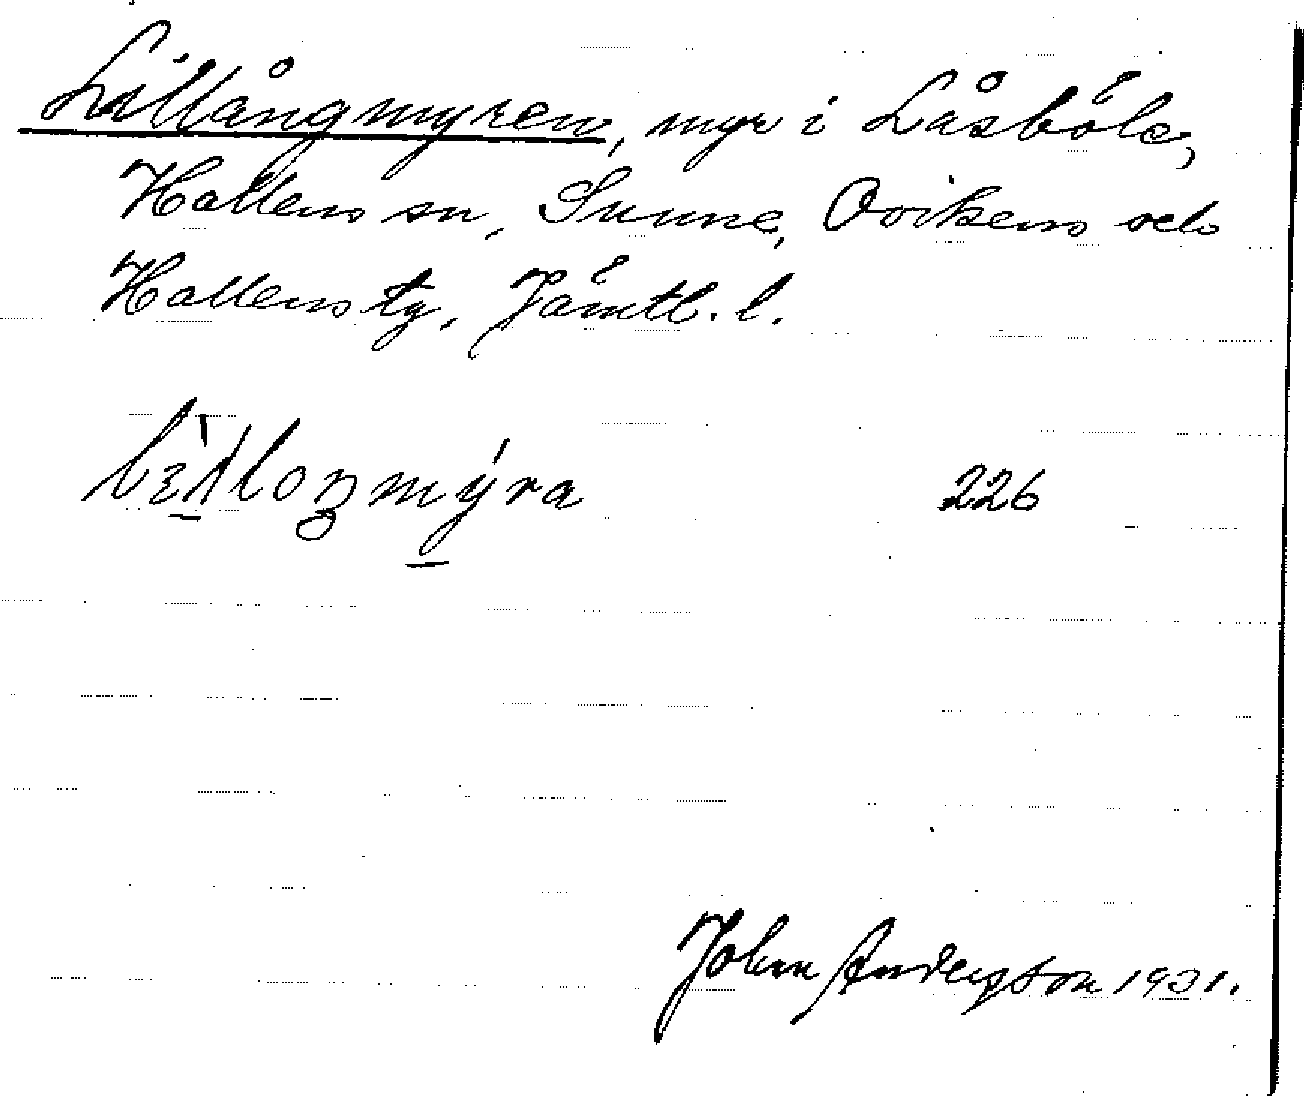 Lillångmyren, myr i Låsböle,
Hallens sn, Sunne, Ovikens och
Hallens tg, Jämtl. l.
226
John Anderson 1931.